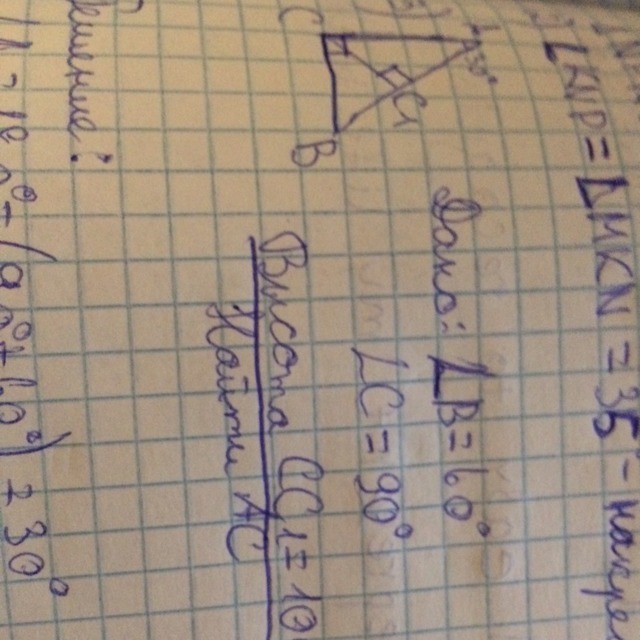 ∠KNP = ∠MKN = 35 -
C
B
C₁
Дано: ∠B = 60°
∠C = 90°
Высота CC₁ = 10
Найти AC
Решение:
180° - (90° + 60°) = 30°